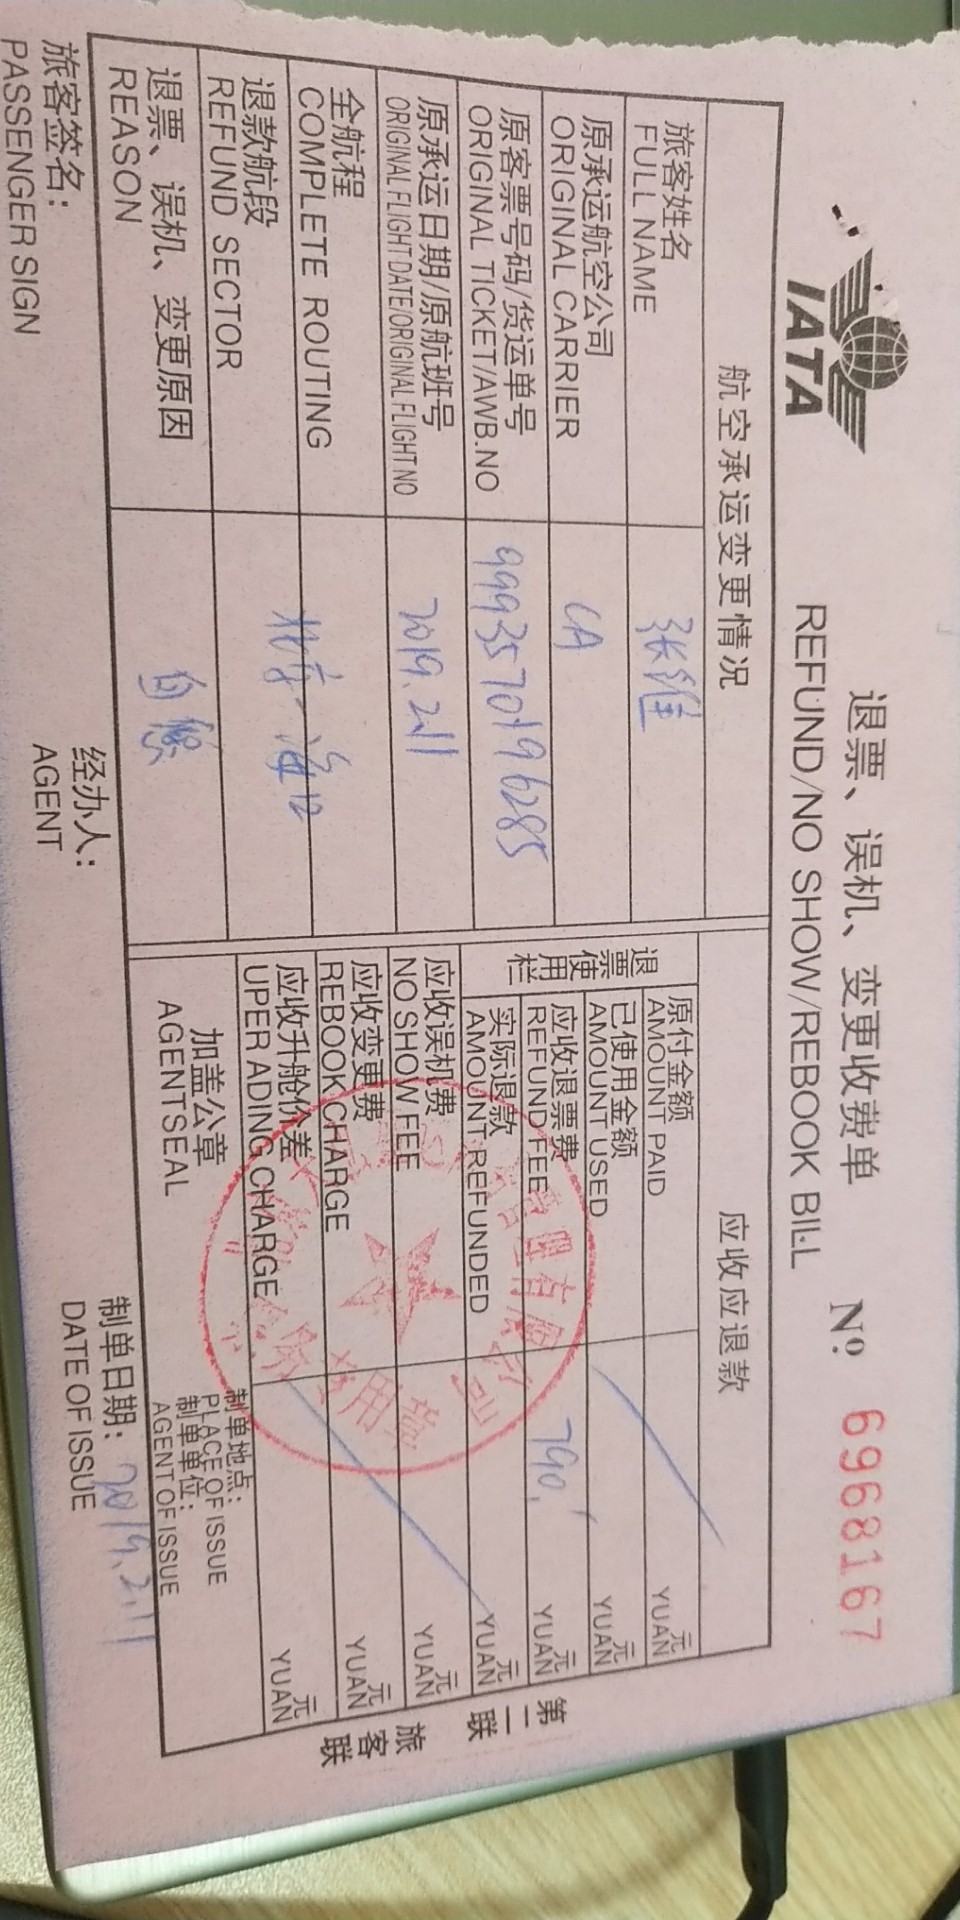 IATA
退票、误机、变更收费单
REFUND/NO SHOW/REBOOK BILL
№ 6968167
航空承运变更情况
应收应退款
旅客姓名
FULL NAME
张维
原承运航空公司
ORIGINAL CARRIER
CA
原客票号码/货运单号
ORIGINAL TICKET/AWB.NO
9993570196285
原承运日期/原航班号
ORIGINAL FLIGHT DATE/ORIGINAL FLIGHT NO
2019.2.11
全航程
COMPLETE ROUTING
退款航段
REFUND SECTOR
北京-海口
退票、误机、变更原因
REASON
自愿
退票使用栏
原付金额
AMOUNT PAID
元
YUAN
已使用金额
AMOUNT USED
元
YUAN
应收退票费
REFUND FEE
790
元
YUAN
实际退款
AMOUNT REFUNDED
元
YUAN
应收误机费
NO SHOW FEE
元
YUAN
应收变更费
REBOOK CHARGE
元
YUAN
应收升舱价差
UPER ADING CHARGE
元
YUAN
加盖公章
AGENT SEAL
制单地点:
PLACE OF ISSUE
制单单位:
AGENT OF ISSUE
管理有限公司
专用章
第二联
旅客联
旅客签名:
PASSENGER SIGN
经办人:
AGENT
制单日期: 2019.2.1
DATE OF ISSUE